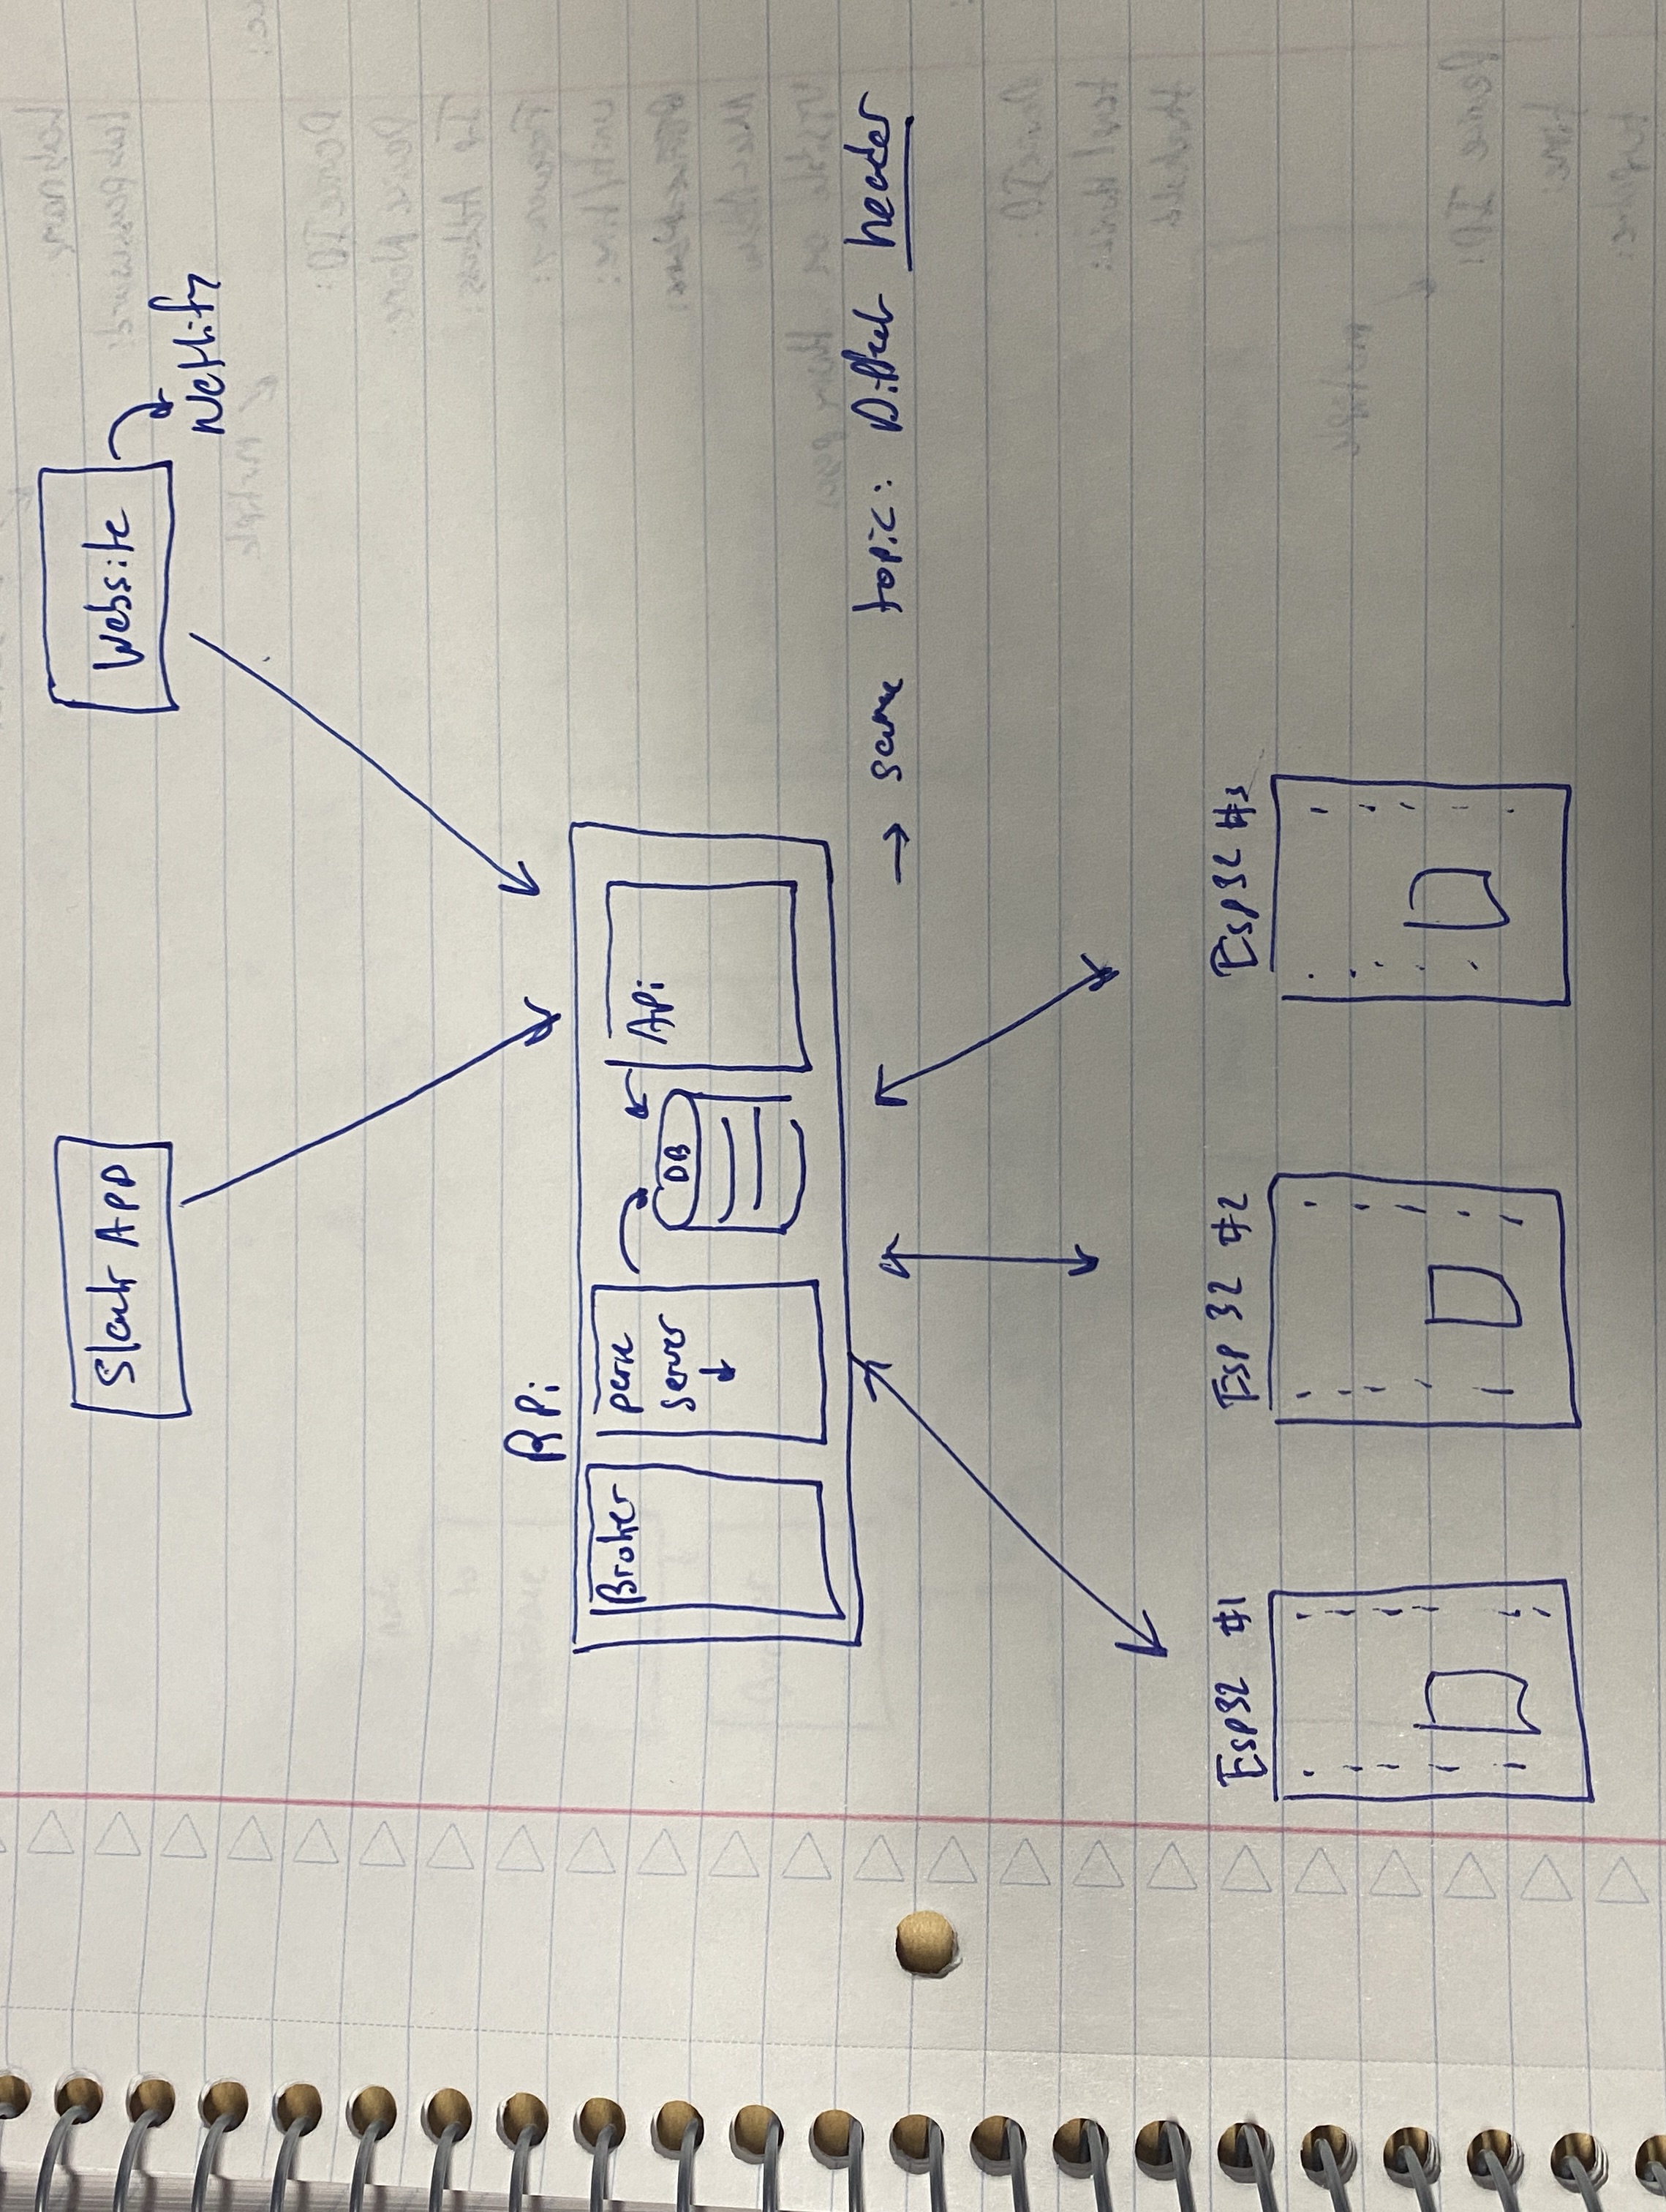 Slack App
Website
Netlify
RPi
Broker
server
DB
Api
→ same topic: Diffent header
Esp32 #1
Esp 32 #2
Esp32 #3